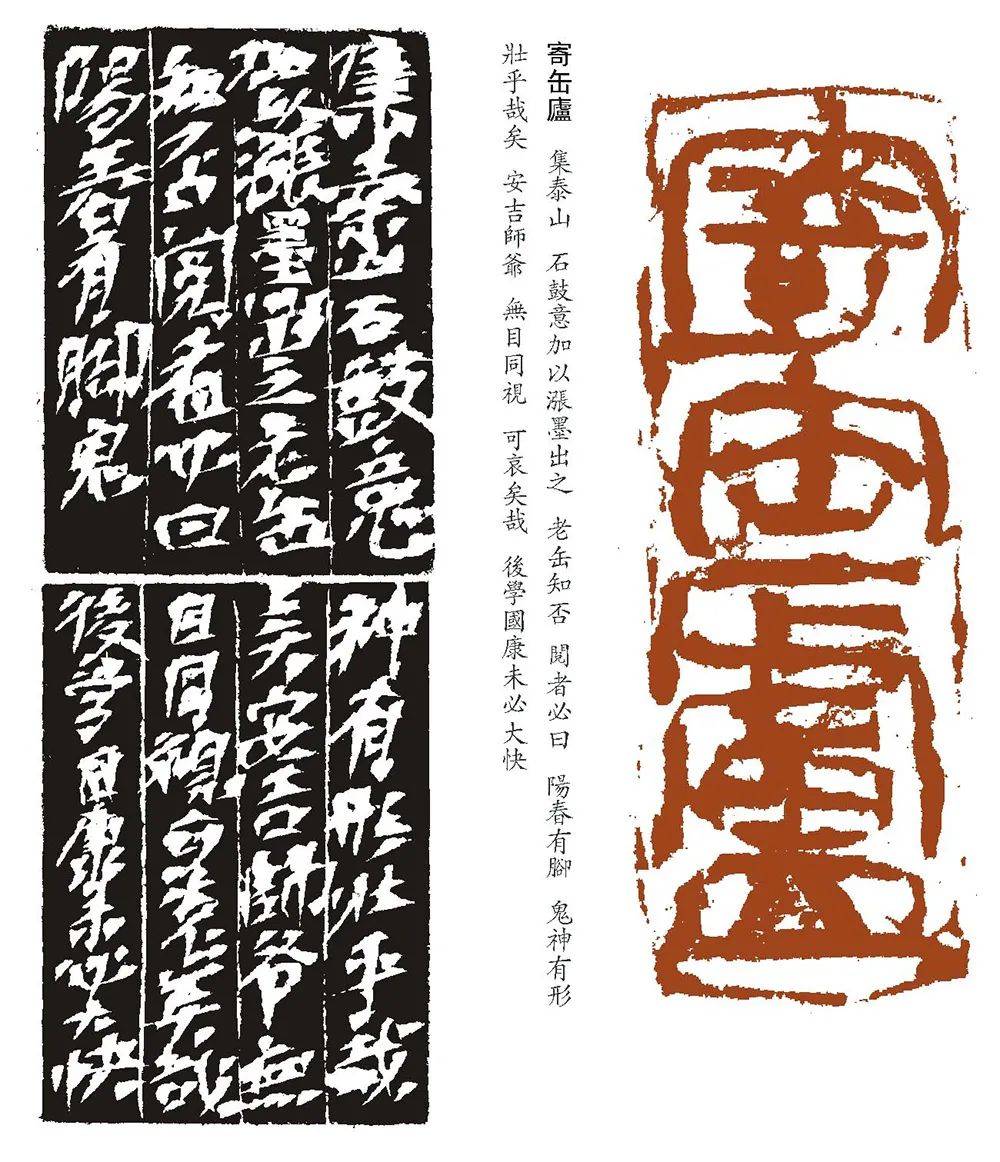 寄缶廬
寄缶廬 集泰山 石鼓意加以漲墨出之 老缶知否 閱者必曰 陽春有腳 鬼神有形
壯乎哉矣 安吉師爺 無目同視 可哀矣哉 後學國康未必大快
集泰山石鼓意
加以漲墨出之老缶
知否閱者必曰
陽春有脚鬼
神有形壯乎哉
矣安吉師爺無
目同視可哀矣哉
後學國康未必大快